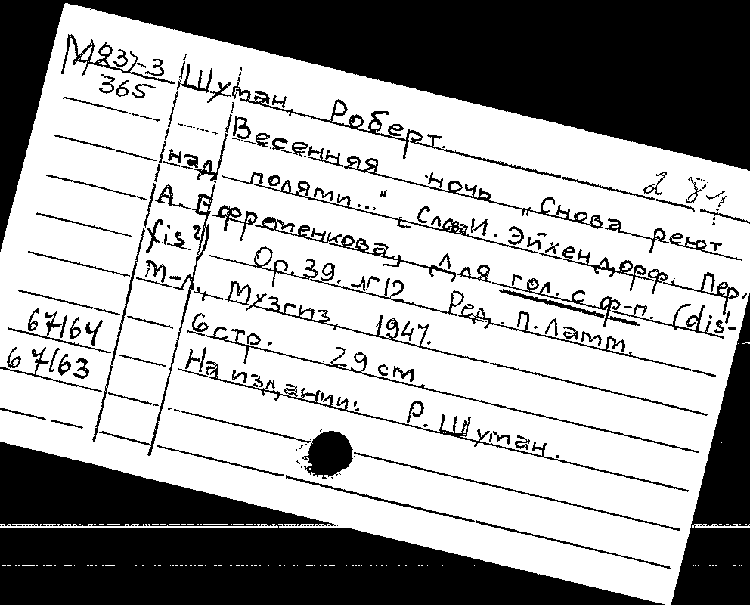 М 237-3
365
Шуман, Роберт.
281
Весенняя ночь „Снова реют
над полями..." Слова И. Эйхендорф. Пер.
А. Ефременкова, Для гол. с ф-п. (dis'-
fis²) Ор. 39. №12 Ред. П. Ламм.
М-Л., Музгиз, 1947.
6 стр. 29 см.
На издании: Р. Шуман.
67164
67163